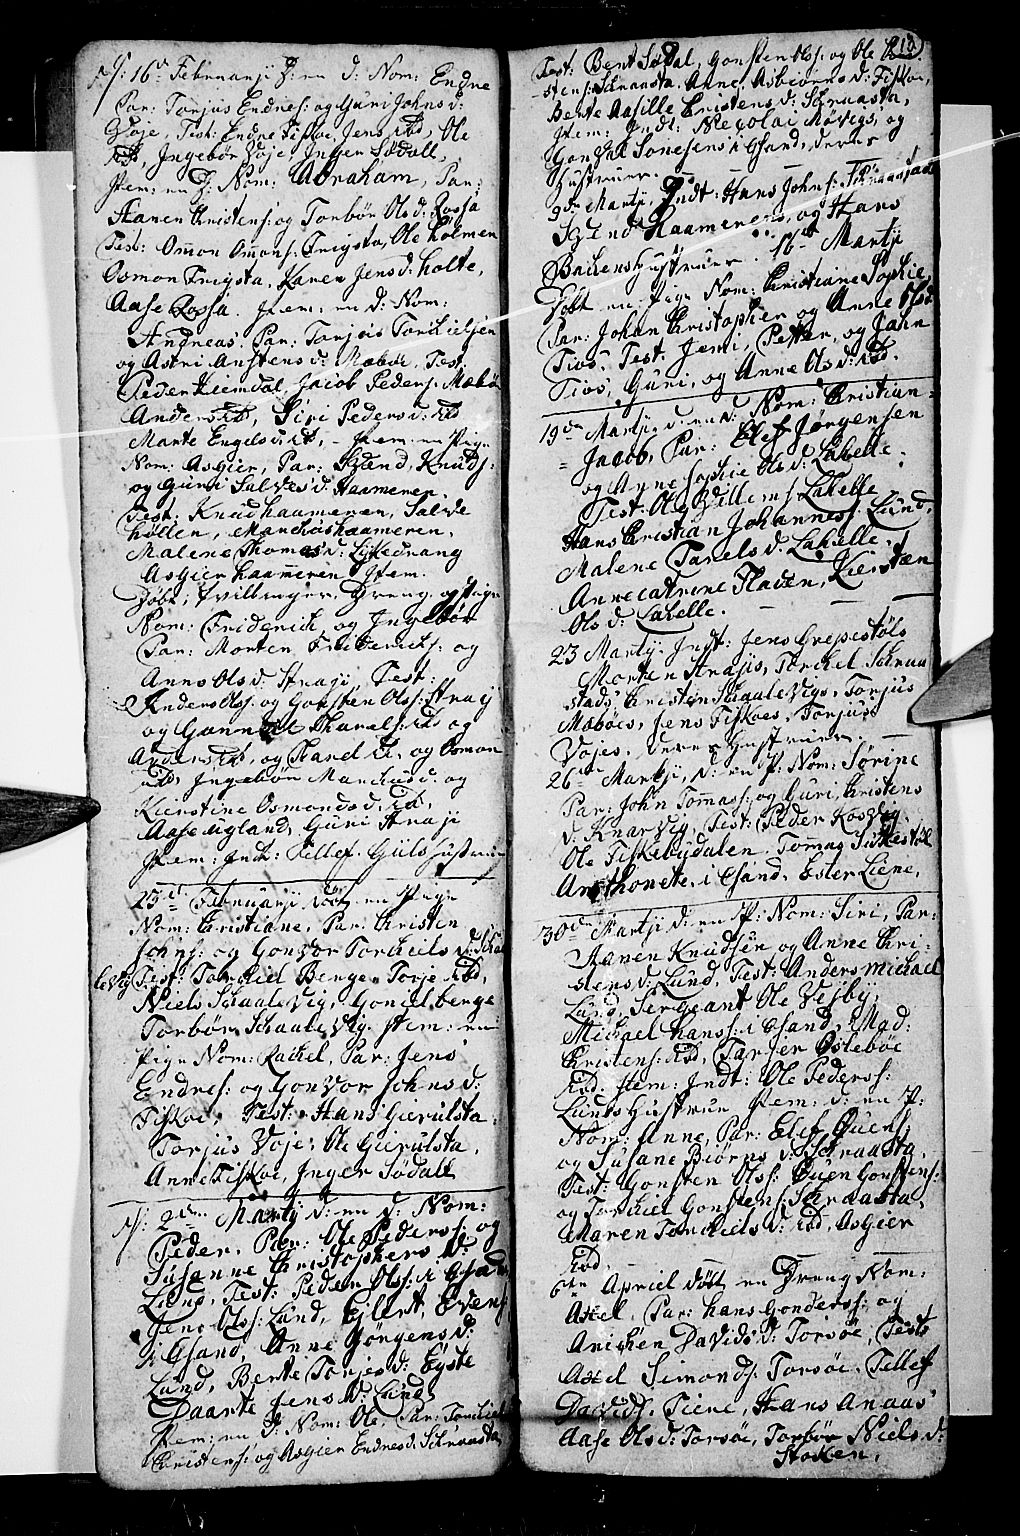 16de Februarij d: en d: Nom: Endre
Par: Torjus Endres: og Guri Johns d:
Voje, Test: Endre Fiskoe, Jens ibd, Ole
ibd, Ingebor Voje, Inger Sødall,
Item: en d: Nom: Abraham, Par:
Hanen Christens: og Torbor Ols d: Rossa
Test: Omon Omons: Frigsta, Ole holmen
Osmon Frigsta, Karen Jens d: holte,
Aase Rossa. Item: en d: Nom:
Andreas. Par: Torjus Torkielsen
og Astri Anstens d: Mæboe. Test,
Peder Leemdal, Jacob Peders: Mæboe
Anders ibd, Siri Peders d: ibd
Marte Engels d: ibd, – Item: en Pige
Nom: Asgier, Par: Svend Knuds:
og Guri Salves d: Haameren.
Test. Knud haameren, Salve
høllen, Marchus haameren,
Malene Thomas d: Lykedrang
Asgier haameren Item.
døbt; tvillinger, Dreng, og Pige
Nom: Friderich, og Ingebor
Par: Morten Friderichs: og
Anne Ols d. Straji, Test:
Anders Ols: og Gonsten Ols: Straij
og Gonnild Tharals: ibd og
Anders ibd, og Tharald ibd. og Osmon
ibd, Ingebor Marchus d: og
Kierstine Osmonds d: ibd,
Aase Ugland, Guri Straji
Item: Indt: Tellef Guls hustrue
23d Februarij døbt en Pige
Nom: Christiane, Par: Christen
Johns: og Gonvor Torkiels d: Skaa
levig Test: Torkiel Berge, Torje ibd,
Niels Skaalevig, Gonild berge
Torbor Skaalevig. Item: en
Pige Nom: Rachel, Par: Jens
Endres: og Gonvor Johns d:
Fiskoe, Test: Hans Gierulsta
Torjus Voje, Ole Gierulsta,
Anne Fiskoe, Inger Sødall
2den Martij d: en d: Nom:
Peder. Par: Ole Peders: og
Susanne Christophers d:
Lund, Test: Peder Ols: i Csand
Jens Ols: Lund, Eilert Evens
i Csand, Anne Jørgens d:
Lund, Berte Torjes d: Eyste
Daarte Jens d: Lund
Item: en d: Nom: Ole, Par: Torkiel
Christens: og Asgier Endres d: Skraasta
Test: Bert Sødal, Gonsten Ols: og Ole
stens: Skraasta. Anne Asbiorns d: Fiskoe,
Berte Aasille Cristens d: Skraasta,
Item: Indt: Nicolai Møvigs, og
Gonval Sonesens i Csand, deres
Hustruer.
9de Martij, Indt: Hans Johns: Skraastads
Svend Haamerens, og Hans
Bachens hustruer. 16de Martij
Døbt en Pige Nom: Christiane Sophie
Par: Johan Christopher og Anne Ols d:
Tvos, Test: Jemi, Petter, og Jahn
Tvos, Guri, og Anne Ols d: ibd.
19de Martij d: en d: Nom: Christian
Jacob, Par: Elef Jørgensen
og Anne Sophie Ols d: Lahelle.
Test: Ole Villems: Lahelle
Hans Christian Johannes: Lund,
Malene Tarels d: Lahelle,
Anne Catrine Fladen, Kierstæn
Ols d: Lahelle.
23 Martij Indt: Jens Crepestøls
Morten Strajis, Torkel Skraa
stads, Christen Skaalevigs, Torjus
Mæboes, Jens Fiskoes, Torjus
Vojes, deres hustruer.
26de Martij, d: en P: Nom: Sørine
Par: John Tomass: og Guri Christens
d: Knarvig, Test: Peder Kosvig
Ole Fiskebydalen, Tomas Sukkestøl
Anthonete i Csand, Ester Liene,
30de Martij d: en P: Nom: Siri, Par:
Hanen Knudsen og Anne Chri-
stens d: Lund, Test: Anders Michael
Lund, Sergeant Ole Vejby,
Michael hans: i Csand, Mad:
Christens: ibd, Tarjer Ostebøe
ibd. Item: Indt: Ole Peders:
Lunds Hustrue Item: d: en P:
Nom: Anne, Par: Elef Ouens:
og Susane Biorns d: Skraasta,
Test: Gonsten Ols: Ouen Gonstens:
og Torkiel Gonstens: Skraasta,
Maren Torkiels d: ibd, Asgier
ibd.
6te Apriel døbt en Dreng Nom:
Axel, Par: hans Gonders: og
Anichen Davids d: Torsøe, Test:
Axel Simonds: Torsøe, Tellef
Davids: Tiene, Hans Anaas
Aase Ols d: Torsøe, Torbor Niels d:
Stoken.